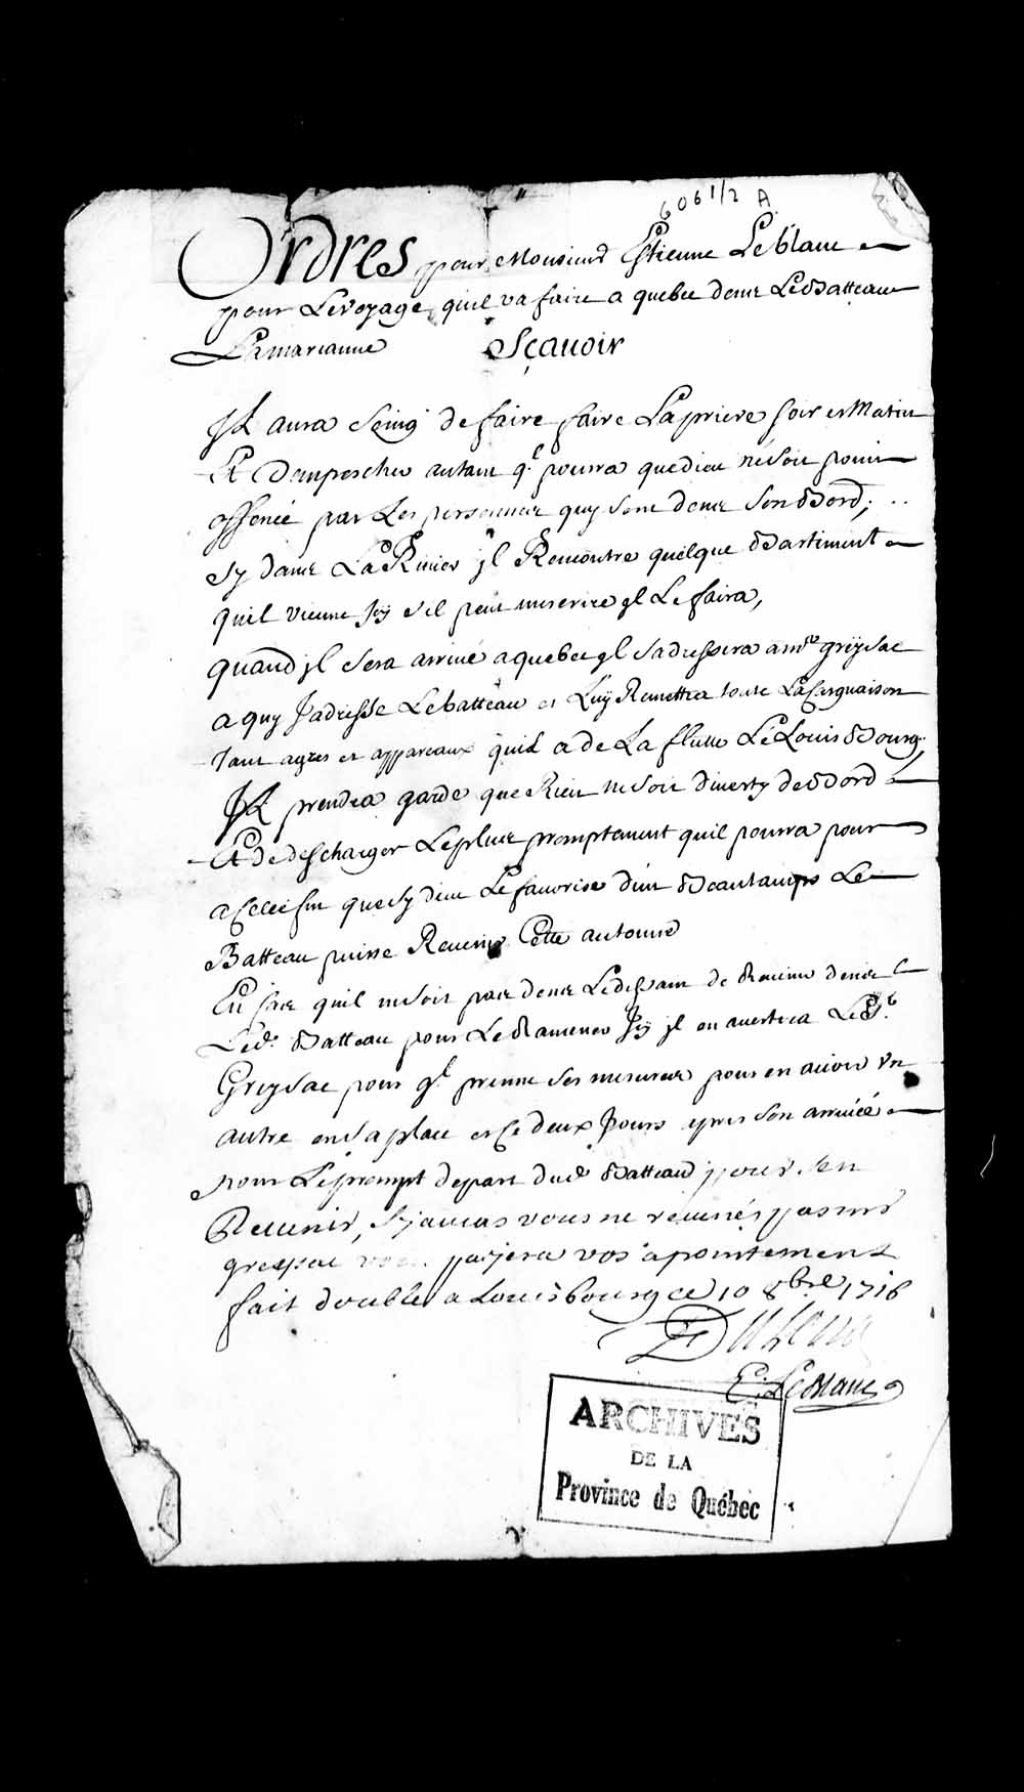 6061/2 A
Ordres pour Monsieur Estienne Le blanc
pour Le voyage, quil va faire a quebec dans Le Batteau
La marianne Sçauoir
Jl aura Soing de faire faire La priere soir et Matin
Et Dempescher autant ql poura que dieu ne soit point
offencé par Les personnes quy sont dans son Bord;
Sy dans La Riuier jl Rencontre quelque Bastiment
quil vienne Jcy s'il peut mescrire jl Le faira,
quand jl sera arriué a quebec jl s'adressera a mr greysac
a quy J'adresse Le batteau et Luy Remettra toute La Cargaison
tant agres et appareaux quil a de La flutte Le Louis Bourg
Jl prendra garde que Rien ne soit diuerty de Bord
Et de descharger Le plus promptement quil pourra pour
a Celle fin que sy dieu Le fauorise d'un Beau tamps Le
Batteau puisse Reuenir Cette automne
En cas quil ne soit pas dans Le dessain de Reuenir dans
Led. Batteau pour Le Ramener Jcy jl en auertira Le Sr.
Greysac pour ql prenne ses mesures pour en auoir vn
autre en sa place et Ce deux Jours apres son arriuée
pour Le prompt depart dud. Batteau pour sen
Reuenir, Sy vous ne reuenés pas mr
gresac payera vos apointements
fait double a Louisbourg ce 10 8bre 1716
E: Le Blanc
ARCHIVES
DE LA
Province de Québec